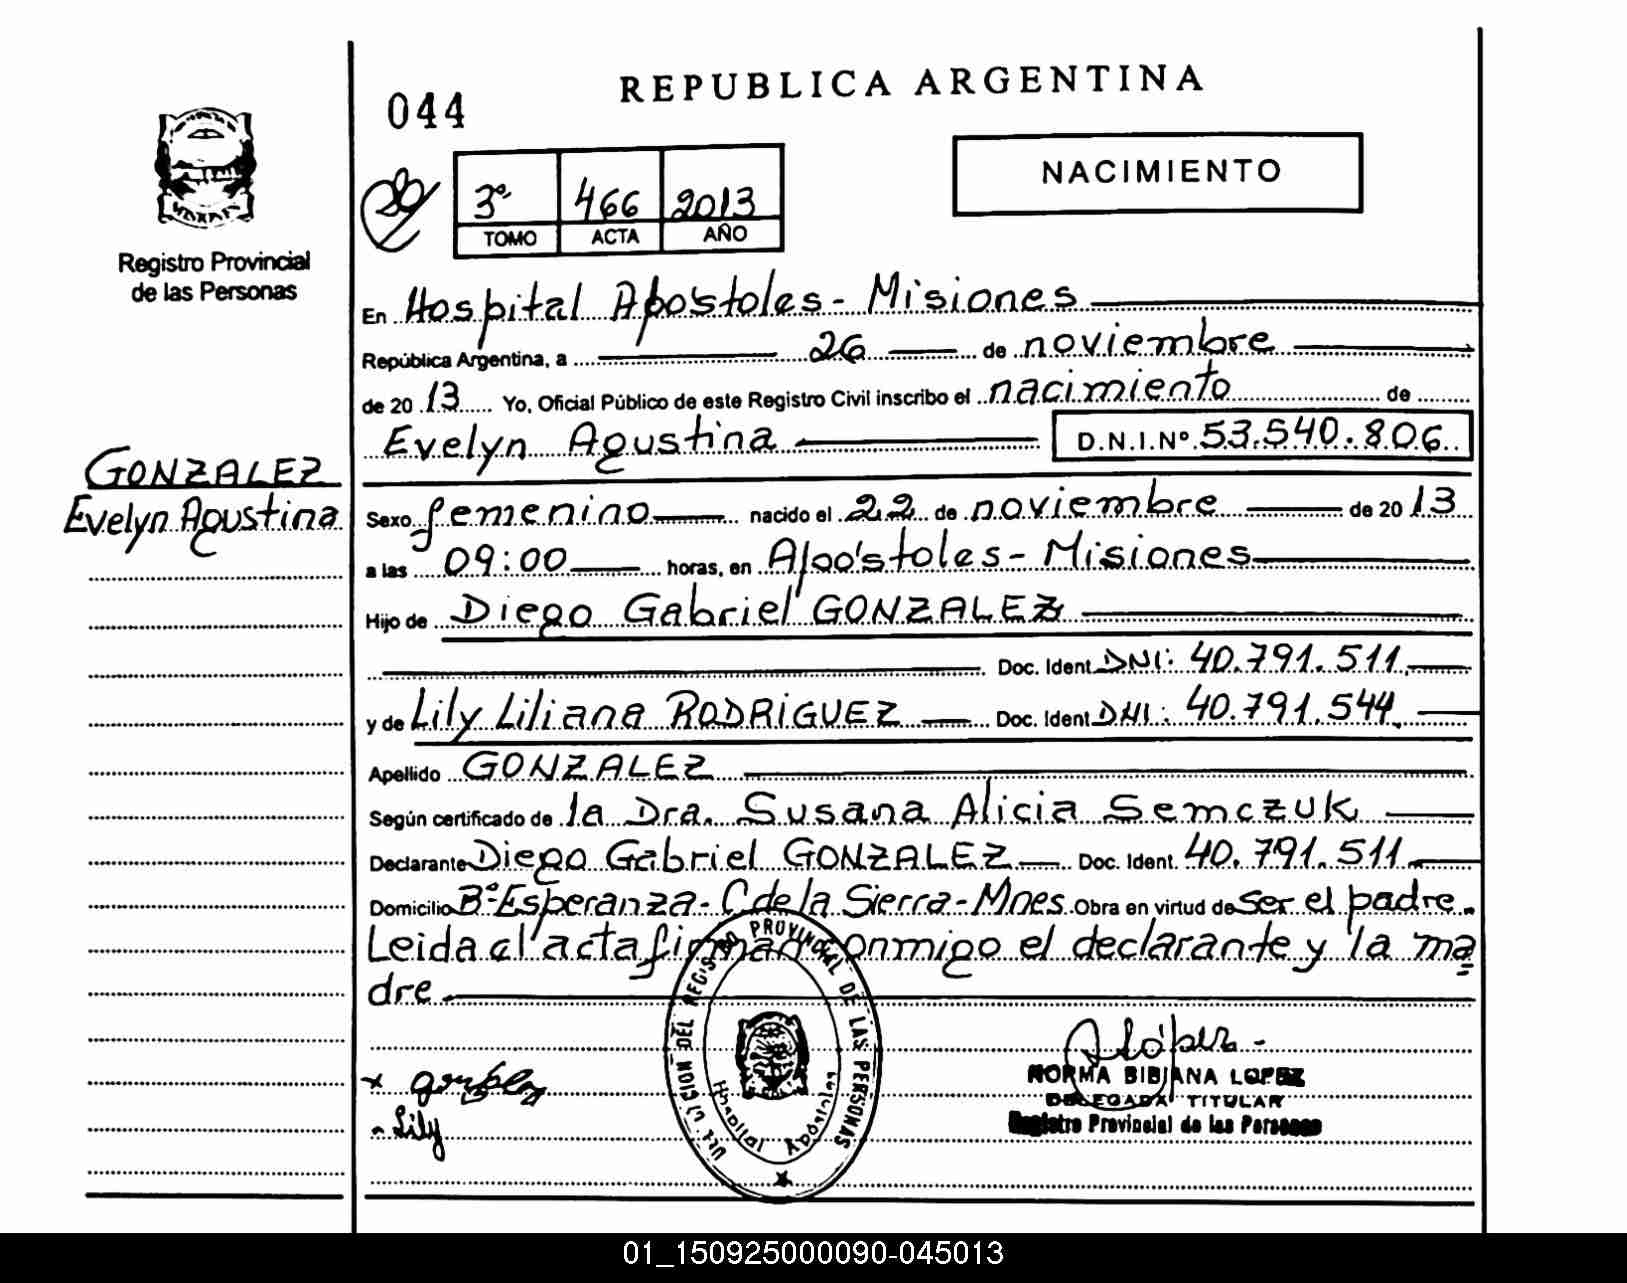 REPUBLICA ARGENTINA
044
NACIMIENTO
3º 466 2013
TOMO ACTA AÑO
Registro Provincial
de las Personas
En Hospital Apóstoles - Misiones
República Argentina, a 26 de noviembre
de 2013 Yo, Oficial Público de este Registro Civil inscribo el nacimiento de
Evelyn Agustina D.N.I.Nº 53.540.806
GONZALEZ
Evelyn Agustina
Sexo femenino nacido el 22 de noviembre de 2013
a las 09:00 horas, en Apóstoles - Misiones
Hijo de Diego Gabriel GONZALEZ
Doc. Ident. DNI: 40.791.511
y de Lily Liliana RODRIGUEZ Doc. Ident DNI: 40.791.544
Apellido GONZALEZ
Según certificado de la Dra. Susana Alicia Semczuk
Declarante Diego Gabriel GONZALEZ Doc. Ident. 40.791.511
Domicilio Bº Esperanza - C. de la Sierra - Mnes. Obra en virtud de ser el padre.
Leida el acta firman conmigo el declarante y la ma
dre
DEL REGISTRO PROVINCIAL DE LAS PERSONAS
Hospital Apóstoles
Lily
NORMA BIBIANA LOPEZ
DELEGADA TITULAR
Registro Provincial de las Personas
01_150925000090-045013